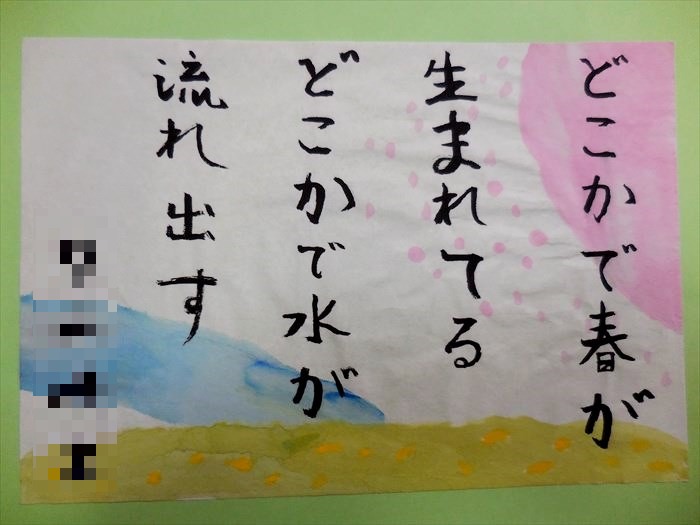 どこかで春が
生まれてる
どこかで水が
流れ出す